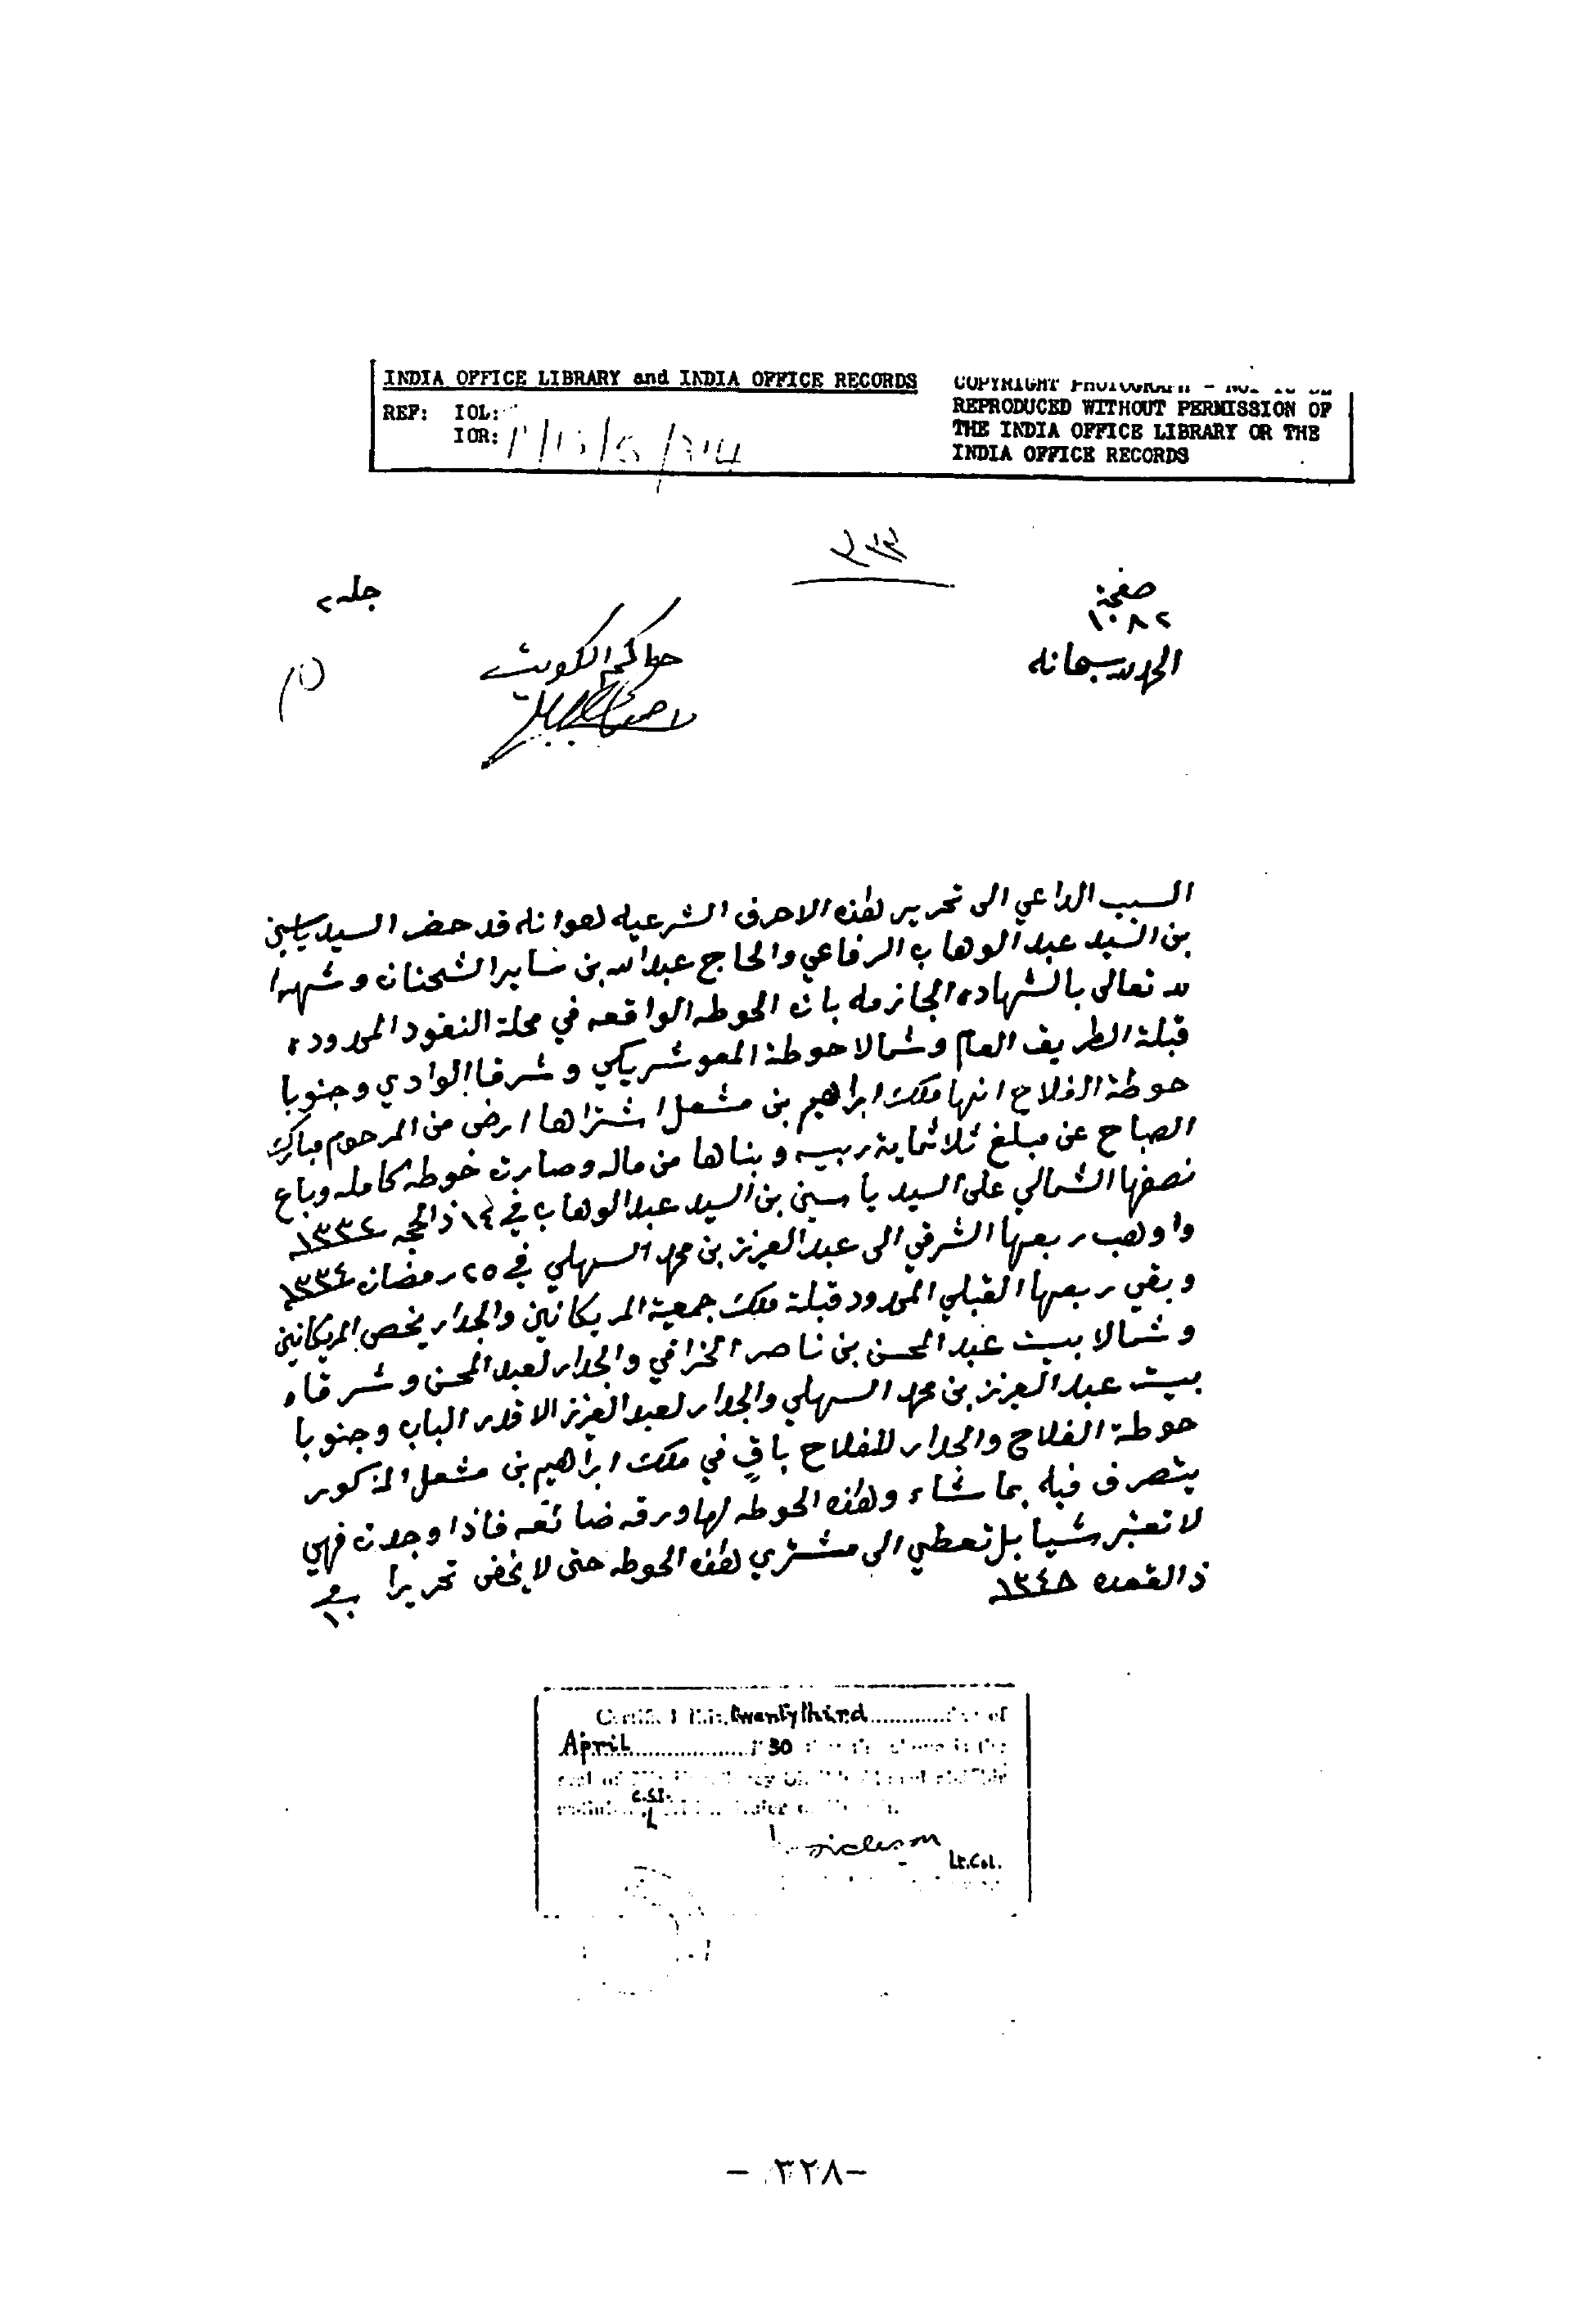 INDIA OFFICE LIBRARY and INDIA OFFICE RECORDS
REF: IOL:
IOR:
COPYRIGHT PHOTOGRAPH -
REPRODUCED WITHOUT PERMISSION OF
THE INDIA OFFICE LIBRARY OR THE
INDIA OFFICE RECORDS
صفحة
١٠٨٢
جلد ٢
الحمد لله سبحانه
حاكم الكويت
السبب الداعي الى تحرير هذه الاحرف الشرعيه هو انه قد حضر السيد ياسين
بن السيد عبد الوهاب الرفاعي والحاج عبدالله بن الشحنان وشهدا
لله تعالى بالشهاده الجازمه بان الحوطه الواقعه في محلة النفود المحدوده
قبلة الطريق العام وشمالا حوطة المعوشرجي وشرقا الوادي وجنوبا
حوطة الفلاح انها ملك ابراهيم بن مشعل اشتراها ارض من المرحوم مبارك
الصباح عن مبلغ ثلاثماية ربيه وبناها من ماله وصارت حوطه كامله وباع
نصفها الشمالي على السيد ياسين بن السيد عبد الوهاب في ١٤ ذالحجه ١٣٣٢
واوهب ربعها الشرقي الى عبدالعزيز بن محمد السهلي في ٢٥ رمضان ١٣٣٤
وبقي ربعها القبلي المحدود قبلة ملك جمعية المريكانيين والجدار يخص المريكانيين
وشمالا بيت عبد المحسن بن ناصر الخرافي والجدار لعبد المحسن وشرقا
بيت عبد العزيز بن محمد السهلي والجدار لعبد العزيز الا قدر الباب وجنوبا
حوطة الفلاح والجدار للفلاح باقٍ في ملك ابراهيم بن مشعل المذكور
يتصرف فيه بما شاء وهذه الحوطه لها ورقه ضائعه فاذا وجدت فهي
لا تعتبر شيا بل تعطي الى مشتري هذه الحوطه حتى لا يخفى تحريرا في ١٠
ذالقعده ١٣٤٨
twentythird
April 30
C.S.I.
Lt. Col.
- ٣٢٨ -